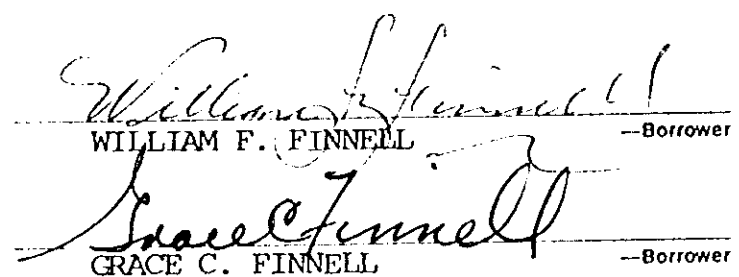 William F. Finnell
WILLIAM F. FINNELL —Borrower
Grace C Finnell
GRACE C. FINNELL —Borrower